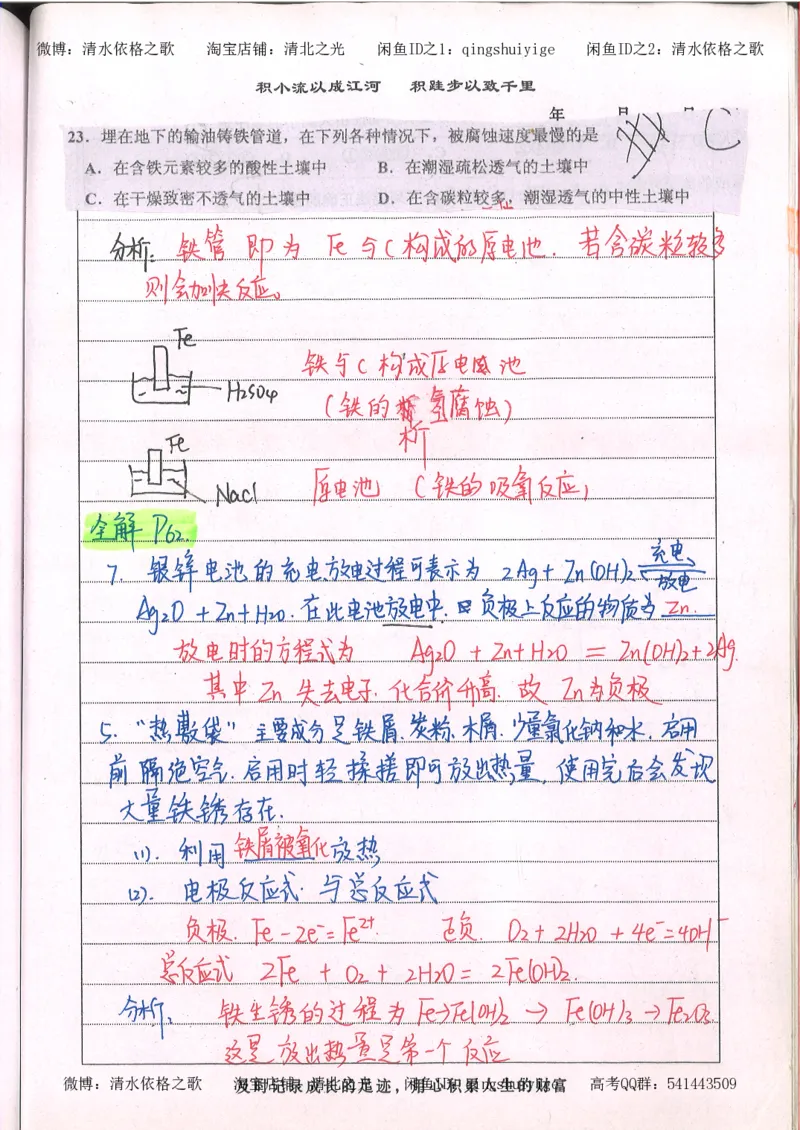 微博：清水依格之歌 淘宝店铺：清北之光 闲鱼ID之1：qingshuiyige 闲鱼ID之2：清水依格之歌
积小流以成江河 积跬步以致千里
年 月 日
23．埋在地下的输油铸铁管道，在下列各种情况下，被腐蚀速度最慢的是 C
A．在含铁元素较多的酸性土壤中 B．在潮湿疏松透气的土壤中
C．在干燥致密不透气的土壤中 D．在含碳粒较多，潮湿透气的中性土壤中
分析：铁管即为Fe与C构成的原电池．若含碳粒较多
则会加快反应。
Fe
H2SO4
铁与C构成原电池
（铁的析氢腐蚀）
Fe
NaCl
原电池（铁的吸氧反应）
全解 P62.
7. 银锌电池的充电放电过程可表示为 2Ag+Zn(OH)2 充电、放电
Ag2O+Zn+H2O. 在此电池放电中. 负极上反应的物质为 Zn.
放电时的方程式为 Ag2O+Zn+H2O=Zn(OH)2+2Ag.
其中Zn失去电子.化合价升高.故Zn为负极
5. "热敷袋"主要成分是铁屑.炭粉.木屑.少量氯化钠和水.启用
前隔绝空气.启用时轻揉搓即可放出热量,使用完后会发现
大量铁锈存在.
(1). 利用铁屑被氧化放热
(2). 电极反应式.与总反应式
负极. Fe-2e⁻=Fe²⁺. 正负. O2+2H2O+4e⁻=4OH⁻
总反应式 2Fe+O2+2H2O=2Fe(OH)2.
分析: 铁生锈的过程为Fe→Fe(OH)2→Fe(OH)3→Fe2O3
这是放出热量是第一个反应
微博：清水依格之歌 淘宝店铺：清北之光 闲鱼ID之1：qingshuiyige 高考QQ群：541443509
及时记录成长的足迹，用心积累人生的财富